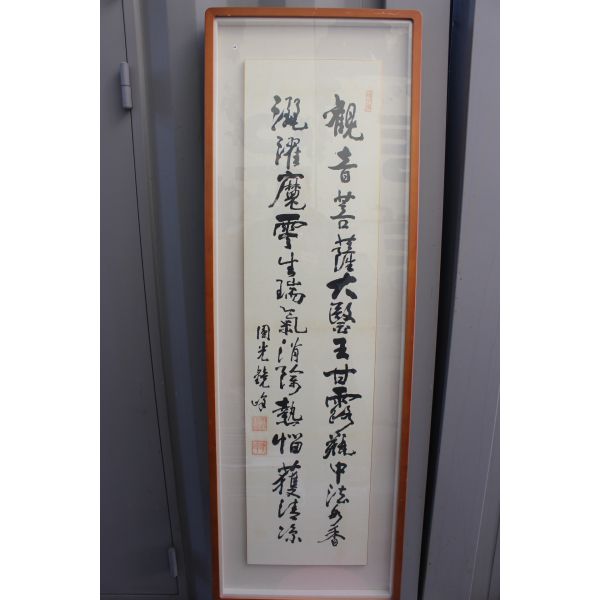 觀音菩薩大醫王甘露瓶中法水香
灑濯魔雲生瑞氣消除熱惱獲清涼
光鏡峰